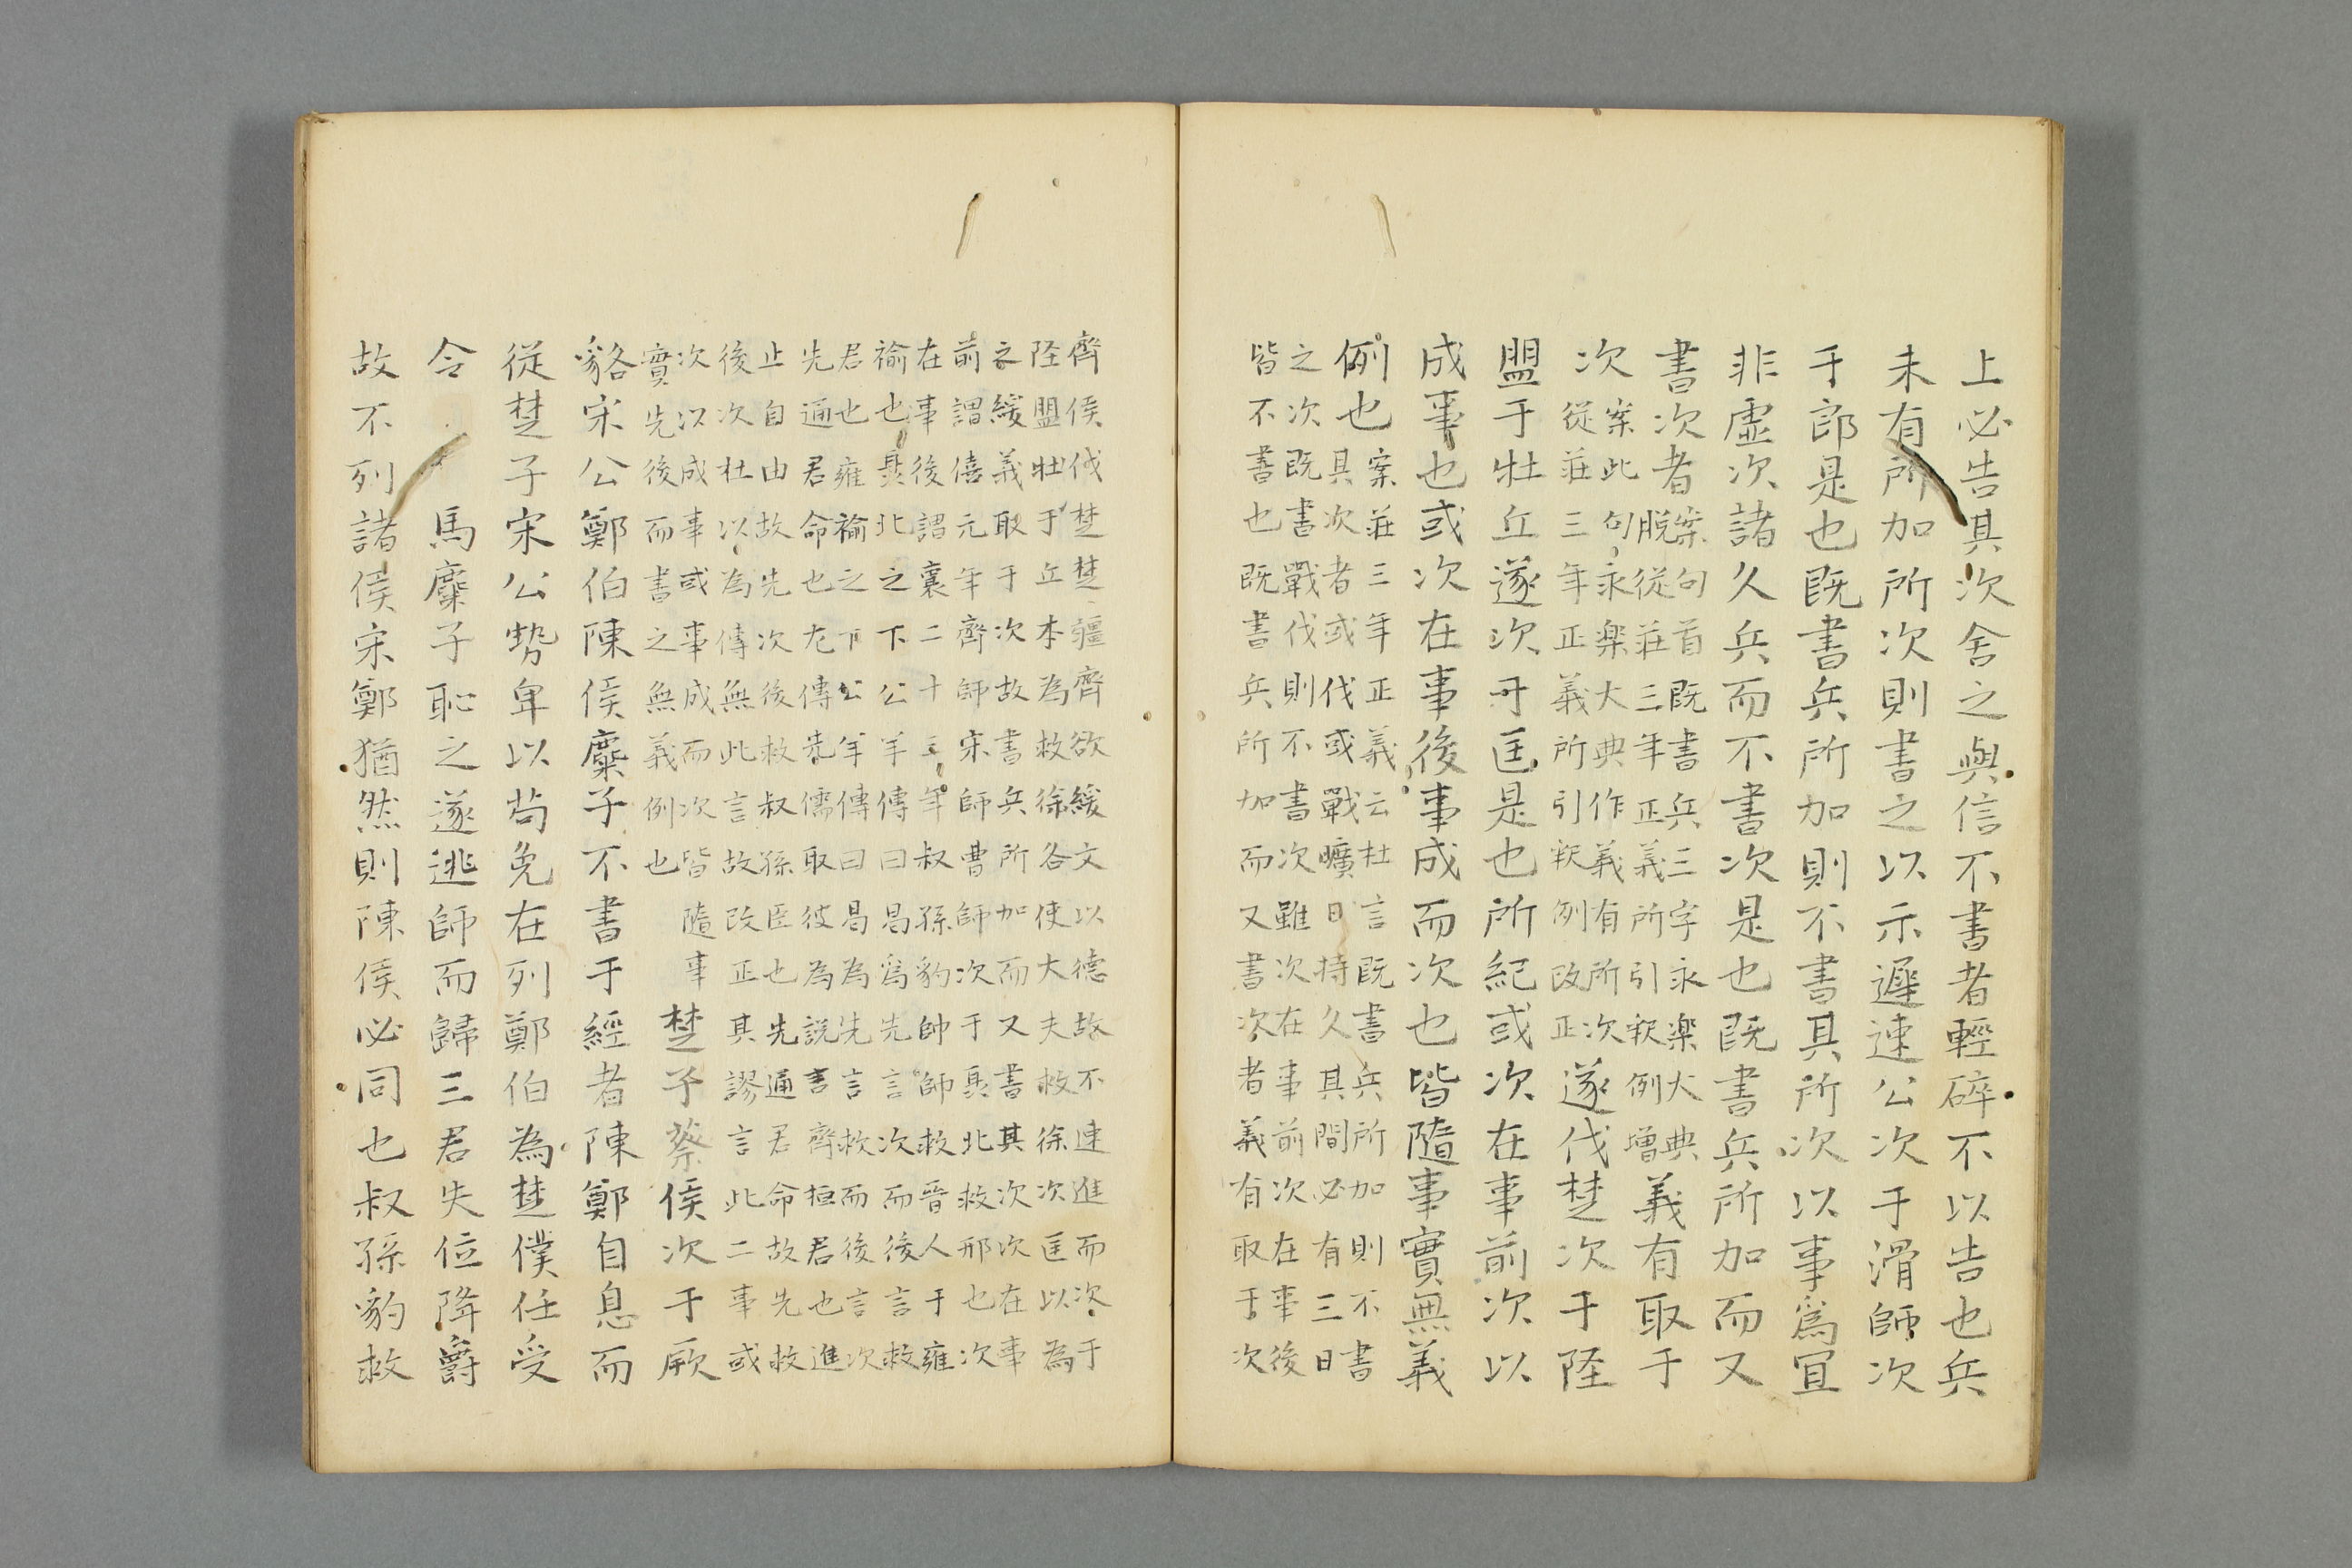 上必告其次舍之與信不書者輕碎不以告也兵
未有所加所次則書之以示遲速公次于滑師次
于郎是也既書兵所加則不書其所次以事爲冝
非虛次諸久兵而不書次是也既書兵所加而又
書次者
案句首既書兵三字永楽大典
脱從莊三年正義所引釈例増
義有取于
次
案此句永楽大典作義有所次
從莊三年正義所引釈例改正
遂伐楚次于陘
盟于牡丘遂次于匡是也所紀或次在事前次以
成事也或次在事後事成而次也皆隨事實無義
例也
案莊三年正義云杜言既書兵所加則不書
其次者或伐或戰曠日持久其間必有三日
之次既書戰伐則不書次雖次在事前次在事後
皆不書也既書兵所加而又書次者義有取于次
齊侯伐楚楚疆齊欲綏文以德故不速進而次于
陘盟牡于丘本為救徐各使大夫救徐次匡以為
之緩義取于次故書兵所加而又書其次次在事
前謂僖元年齊師宋師曹師次于聶北救邢也次
在事後謂襄二十三年叔孫豹帥師救晉人于雍
褕也聶北之下公羊傳曰曷爲先言次而後言救
君也雍褕之下公羊傳曰曷為先言救而後言次
先通君命也尤傳恭儒取彼為説言齊桓君也進
止自由故先次後救叔孫臣也先通君命故先救
後次杜以為傳無此言故改正其謬言此二事或
次以成事或事成而次皆隨事
實先後而書之無義例也
楚子蔡侯次于厥
貉宋公鄭伯陳侯麋子不書于經者陳鄭自息而
從楚子宋公勢卑以苟免在列鄭伯為楚僕任受
令馬麋子恥之遂逃師而歸三君失位降爵
故不列諸侯宋鄭猶然則陳侯必同也叔孫豹救